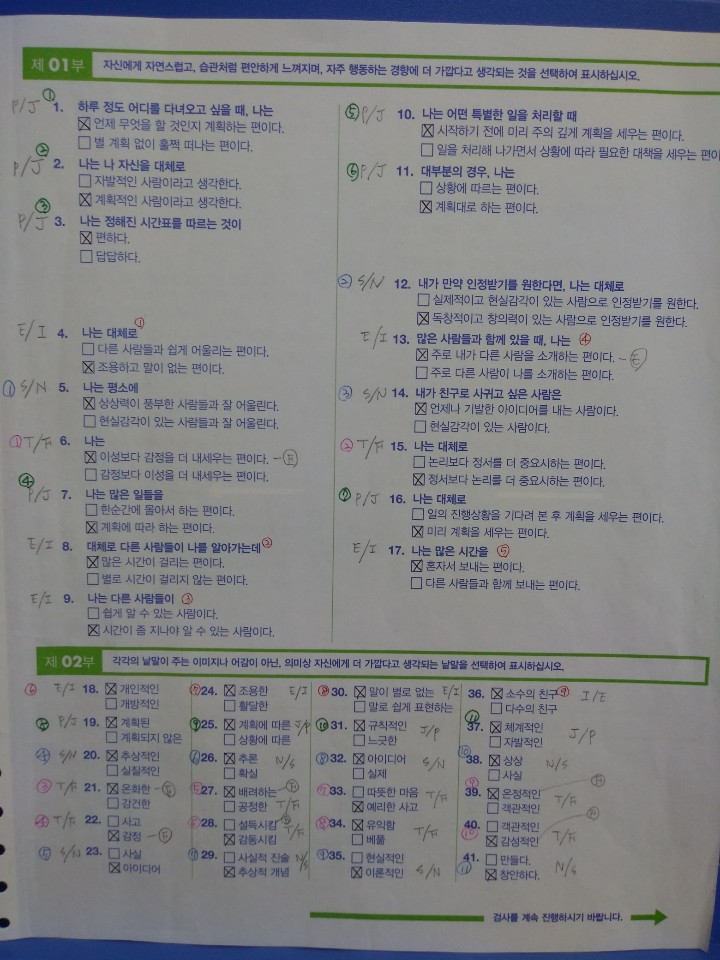 제 01부 자신에게 자연스럽고, 습관처럼 편안하게 느껴지며, 자주 행동하는 경향에 더 가깝다고 생각되는 것을 선택하여 표시하십시오.
P/J ① 1. 하루 정도 어디를 다녀오고 싶을 때, 나는
☒ 언제 무엇을 할 것인지 계획하는 편이다.
☐ 별 계획 없이 훌쩍 떠나는 편이다.
P/J ② 2. 나는 나 자신을 대체로
☐ 자발적인 사람이라고 생각한다.
☒ 계획적인 사람이라고 생각한다.
P/J ③ 3. 나는 정해진 시간표를 따르는 것이
☒ 편하다.
☐ 답답하다.
E/I 4. 나는 대체로 ①
☐ 다른 사람들과 쉽게 어울리는 편이다.
☒ 조용하고 말이 없는 편이다.
① S/N 5. 나는 평소에
☒ 상상력이 풍부한 사람들과 잘 어울린다.
☐ 현실감각이 있는 사람들과 잘 어울린다.
① T/F 6. 나는
☒ 이성보다 감정을 더 내세우는 편이다. - Ⓕ
☐ 감정보다 이성을 더 내세우는 편이다.
④ P/J 7. 나는 많은 일들을
☐ 한순간에 몰아서 하는 편이다.
☒ 계획에 따라 하는 편이다.
E/I 8. 대체로 다른 사람들이 나를 알아가는데 ②
☒ 많은 시간이 걸리는 편이다.
☐ 별로 시간이 걸리지 않는 편이다.
E/I 9. 나는 다른 사람들이 ③
☐ 쉽게 알 수 있는 사람이다.
☒ 시간이 좀 지나야 알 수 있는 사람이다.
⑤ P/J 10. 나는 어떤 특별한 일을 처리할 때
☒ 시작하기 전에 미리 주의 깊게 계획을 세우는 편이다.
☐ 일을 처리해 나가면서 상황에 따라 필요한 대책을 세우는 편이
⑥ P/J 11. 대부분의 경우, 나는
☐ 상황에 따르는 편이다.
☒ 계획대로 하는 편이다.
② S/N 12. 내가 만약 인정받기를 원한다면, 나는 대체로
☐ 실제적이고 현실감각이 있는 사람으로 인정받기를 원한다.
☒ 독창적이고 창의력이 있는 사람으로 인정받기를 원한다.
E/I 13. 많은 사람들과 함께 있을 때, 나는 ④
☒ 주로 내가 다른 사람을 소개하는 편이다. - Ⓔ
☐ 주로 다른 사람이 나를 소개하는 편이다.
③ S/N 14. 내가 친구로 사귀고 싶은 사람은
☒ 언제나 기발한 아이디어를 내는 사람이다.
☐ 현실감각이 있는 사람이다.
② T/F 15. 나는 대체로
☐ 논리보다 정서를 더 중요시하는 편이다.
☒ 정서보다 논리를 더 중요시하는 편이다.
⑦ P/J 16. 나는 대체로
☐ 일의 진행상황을 기다려 본 후 계획을 세우는 편이다.
☒ 미리 계획을 세우는 편이다.
E/I 17. 나는 많은 시간을 ⑤
☒ 혼자서 보내는 편이다.
☐ 다른 사람들과 함께 보내는 편이다.
제 02부 각각의 낱말이 주는 이미지나 어감이 아닌, 의미상 자신에게 더 가깝다고 생각되는 낱말을 선택하여 표시하십시오.
⑥ E/I 18. ☒ 개인적인
☐ 개방적인
⑧ P/J 19. ☒ 계획된
☐ 계획되지 않은
④ S/N 20. ☒ 추상적인
☐ 실질적인
③ T/F 21. ☒ 온화한 - Ⓕ
☐ 강건한
④ T/F 22. ☐ 사고
☒ 감정 - Ⓕ
⑤ S/N 23. ☐ 사실
☒ 아이디어
⑦ 24. ☒ 조용한 E/I
☐ 활달한
⑨ 25. ☒ 계획에 따른 J/P
☐ 상황에 따른
⑥ 26. ☒ 추론 N/S
☐ 확실
⑤ 27. ☒ 배려하는 - Ⓕ
☐ 공정한 T/F
⑥ 28. ☐ 설득시킴 Ⓕ
☒ 감동시킴 T/F
⑦ 29. ☐ 사실적 진술 N/S
☒ 추상적 개념
⑧ 30. ☒ 말이 별로 없는 E/I
☐ 말로 쉽게 표현하는
⑩ 31. ☒ 규칙적인 J/P
☐ 느긋한
⑧ 32. ☒ 아이디어 S/N
☐ 실제
⑦ 33. ☐ 따뜻한 마음 T/F
☒ 예리한 사고
⑧ 34. ☒ 유익함 T/F
☐ 베풂
⑨ 35. ☐ 현실적인
☒ 이론적인 S/N
36. ☒ 소수의 친구 ⑨ I/E
☐ 다수의 친구
⑪ 37. ☒ 체계적인 J/P
☐ 자발적인
⑩ 38. ☒ 상상 N/S
☐ 사실
⑨ 39. ☒ 온정적인 Ⓕ
☐ 객관적인 T/F
⑩ 40. ☐ 객관적인 Ⓕ
☒ 감성적인 T/F
⑪ 41. ☐ 만들다. N/S
☒ 창안하다.
검사를 계속 진행하시기 바랍니다.